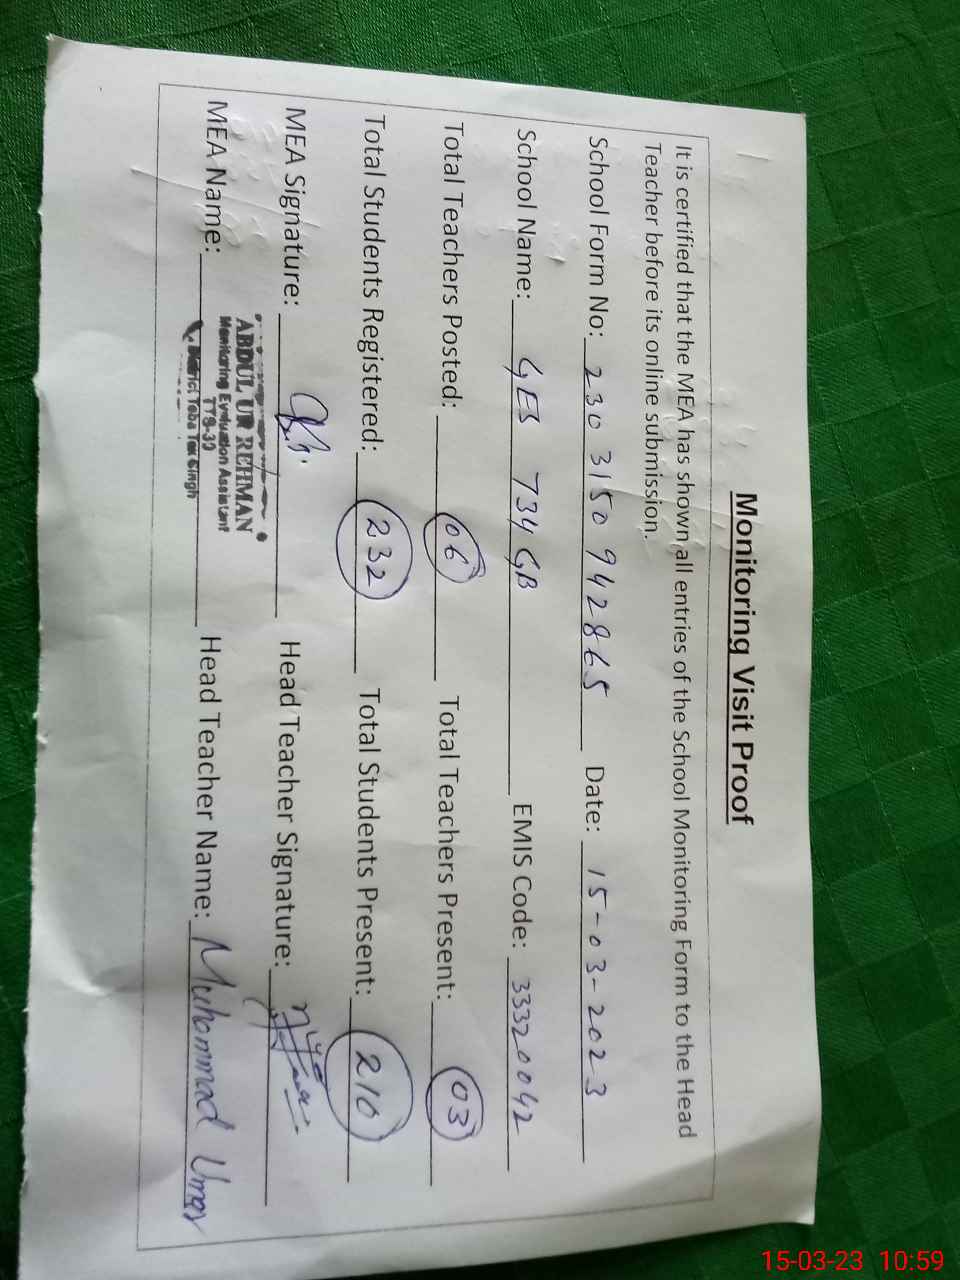 Monitoring Visit Proof
It is certified that the MEA has shown all entries of the School Monitoring Form to the Head
Teacher before its online submission.
School Form No: 230 3150 942865 Date: 15-03-2023
School Name: GES 734 GB EMIS Code: 33320042
Total Teachers Posted: 06 Total Teachers Present: 03
Total Students Registered: 232 Total Students Present: 210
MEA Signature: Head Teacher Signature:
ABDUL UR REHMAN
Monitoring Evaluation Assistant
TTS-39
District Toba Tek Singh
MEA Name: Head Teacher Name: Muhammad Umer
15-03-23 10:59